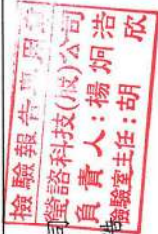 檢驗報告專用章
瑩諮科技(股)公司
負責人:楊炯浩
檢驗室主任:胡欣